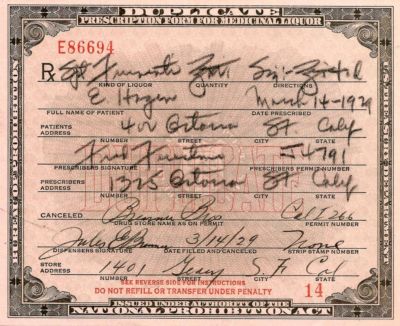 DUPLICATE
PRESCRIPTION FORM FOR MEDICINAL LIQUOR
E86694
Rx Spt Frumenti
KIND OF LIQUOR QUANTITY DIRECTIONS
E March 14-1929
FULL NAME OF PATIENT DATE PRESCRIBED
PATIENTS ADDRESS St. Calif
NUMBER STREET CITY STATE
Fred
PRESCRIBERS SIGNATURE PRESCRIBERS PERMIT NUMBER
PRESCRIBERS ADDRESS 1325 St Calif
NUMBER STREET CITY STATE
CANCELED Bros Cal
DRUG STORE NAME AS ON PERMIT PERMIT NUMBER
Jules 3/14/29 None
DISPENSERS SIGNATURE DATE FILLED AND CANCELED STRIP STAMP NUMBER
STORE ADDRESS 1401 Geary S F Cal
NUMBER STREET CITY STATE
SEE REVERSE SIDE FOR INSTRUCTIONS
DO NOT REFILL OR TRANSFER UNDER PENALTY
14
ISSUED UNDER AUTHORITY OF THE
NATIONAL PROHIBITION ACT